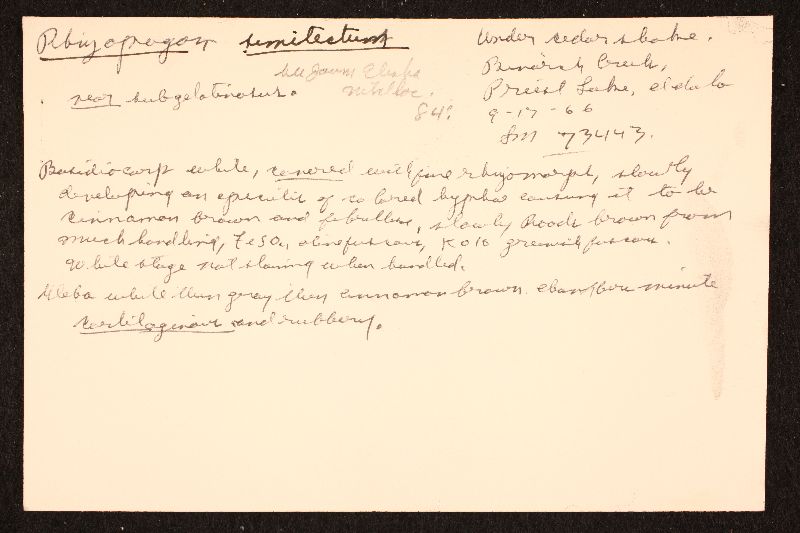 Rhizopogon semitectum
near subgelatinosus.
84:
Under cedar shake.
Binarch Creek,
Priest Lake, Idaho
9-17-66
Sm 73443.
Basidiocarp white, covered with fine rhizomorphs, slowly
developing an epicutis of colored hyphae causing it to be
cinnamon brown and fibrillose, slowly Roods brown from
much handling, FeSO4 olive fuscous, KOH greenish fuscous.
White stage not staining when handled.
Gleba white then gray then cinnamon brown. chambers minute
cartilaginous and rubbery.